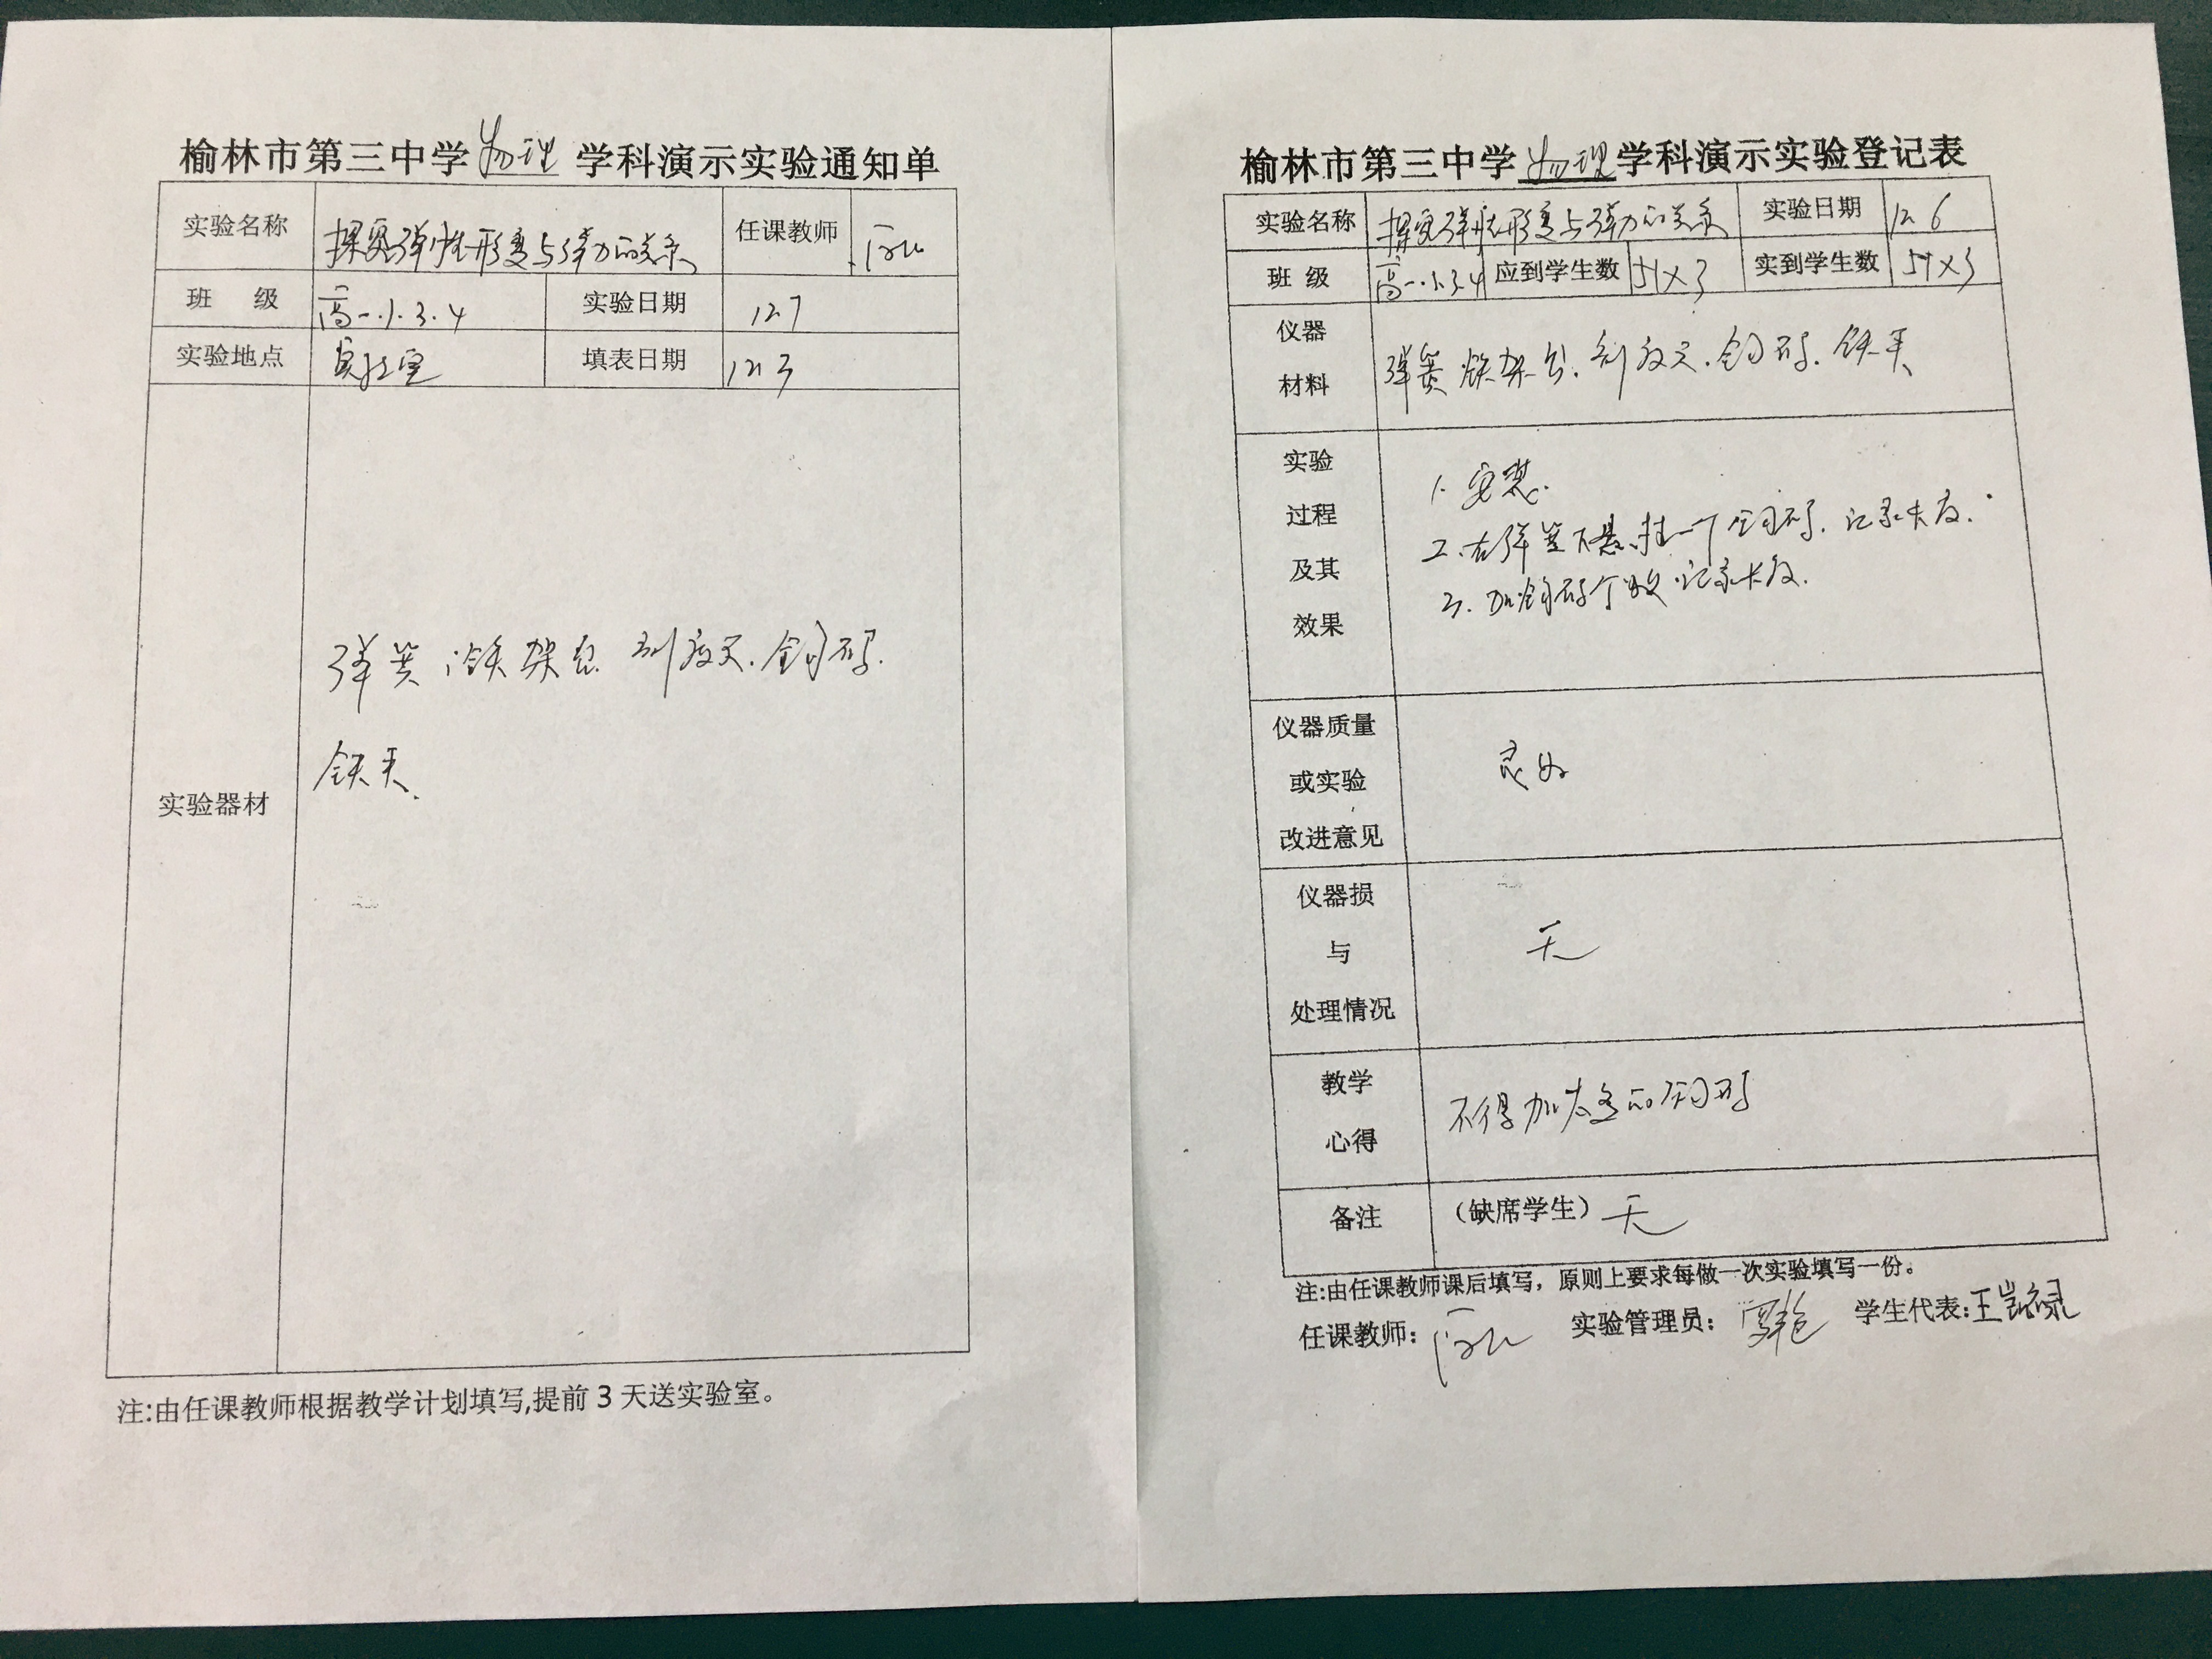 榆林市第三中学 物理 学科演示实验通知单
实验名称 探究弹性形变与弹力的关系 任课教师
班 级 高一.1.3.4 实验日期 12.7
实验地点 实验室 填表日期 12.3
实验器材
弹簧 铁架台 刻度尺.钩码.
铁夹.
注:由任课教师根据教学计划填写,提前 3 天送实验室。
榆林市第三中学 物理 学科演示实验登记表
实验名称 探究弹性形变与弹力的关系 实验日期 12.6
班 级 高一.1.3.4 应到学生数 51×3 实到学生数 51×3
仪器
材料
弹簧 铁架台.刻度尺.钩码.铁夹
实验
过程
及其
效果
1.安装.
2.在弹簧下悬挂一个钩码.记录长度.
3.加钩码个数.记录长度.
仪器质量
或实验
改进意见
良好
仪器损
与
处理情况
无
教学
心得
不得加太多的钩码
备注 （缺席学生）无
注:由任课教师课后填写，原则上要求每做一次实验填写一份。
任课教师： 实验管理员： 学生代表:王